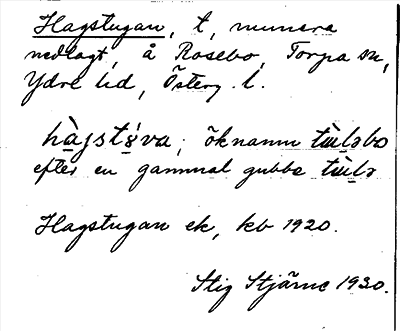 Hagstugan, t, numera
nedlagt, å Rosebo, Torpa sn,
Ydre hd, Österg. l.
hàjstẁva; öknamn tùləbo
efter en gammal gubbe tùlə
Hagstugan ek, kb 1920.
Stig Stjärne 1930.